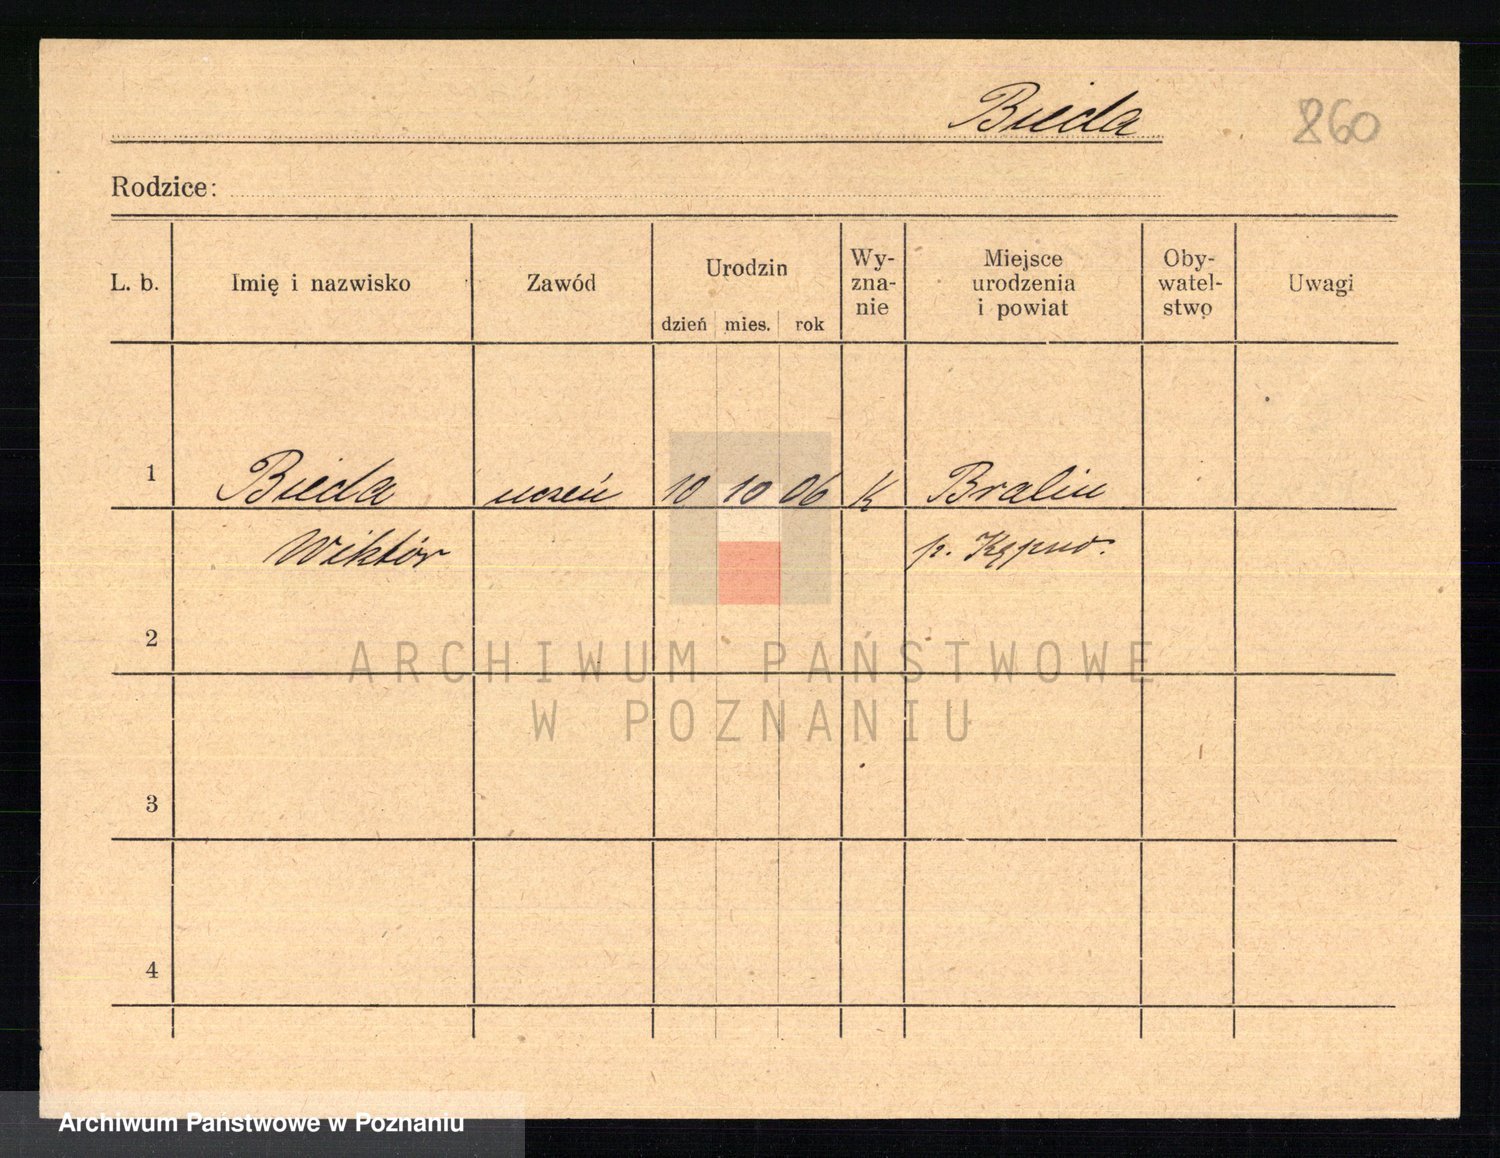 Bieda 860
Rodzice:
L. b. Imię i nazwisko Zawód Urodzin dzień mies. rok Wy-zna-nie Miejsce urodzenia i powiat Oby-watel-stwo Uwagi
1 Bieda uczeń 10 10 06 K Bralin
Wiktór p. Kępno.
2
ARCHIWUM PAŃSTWOWE
W POZNANIU
3
4
Archiwum Państwowe w Poznaniu